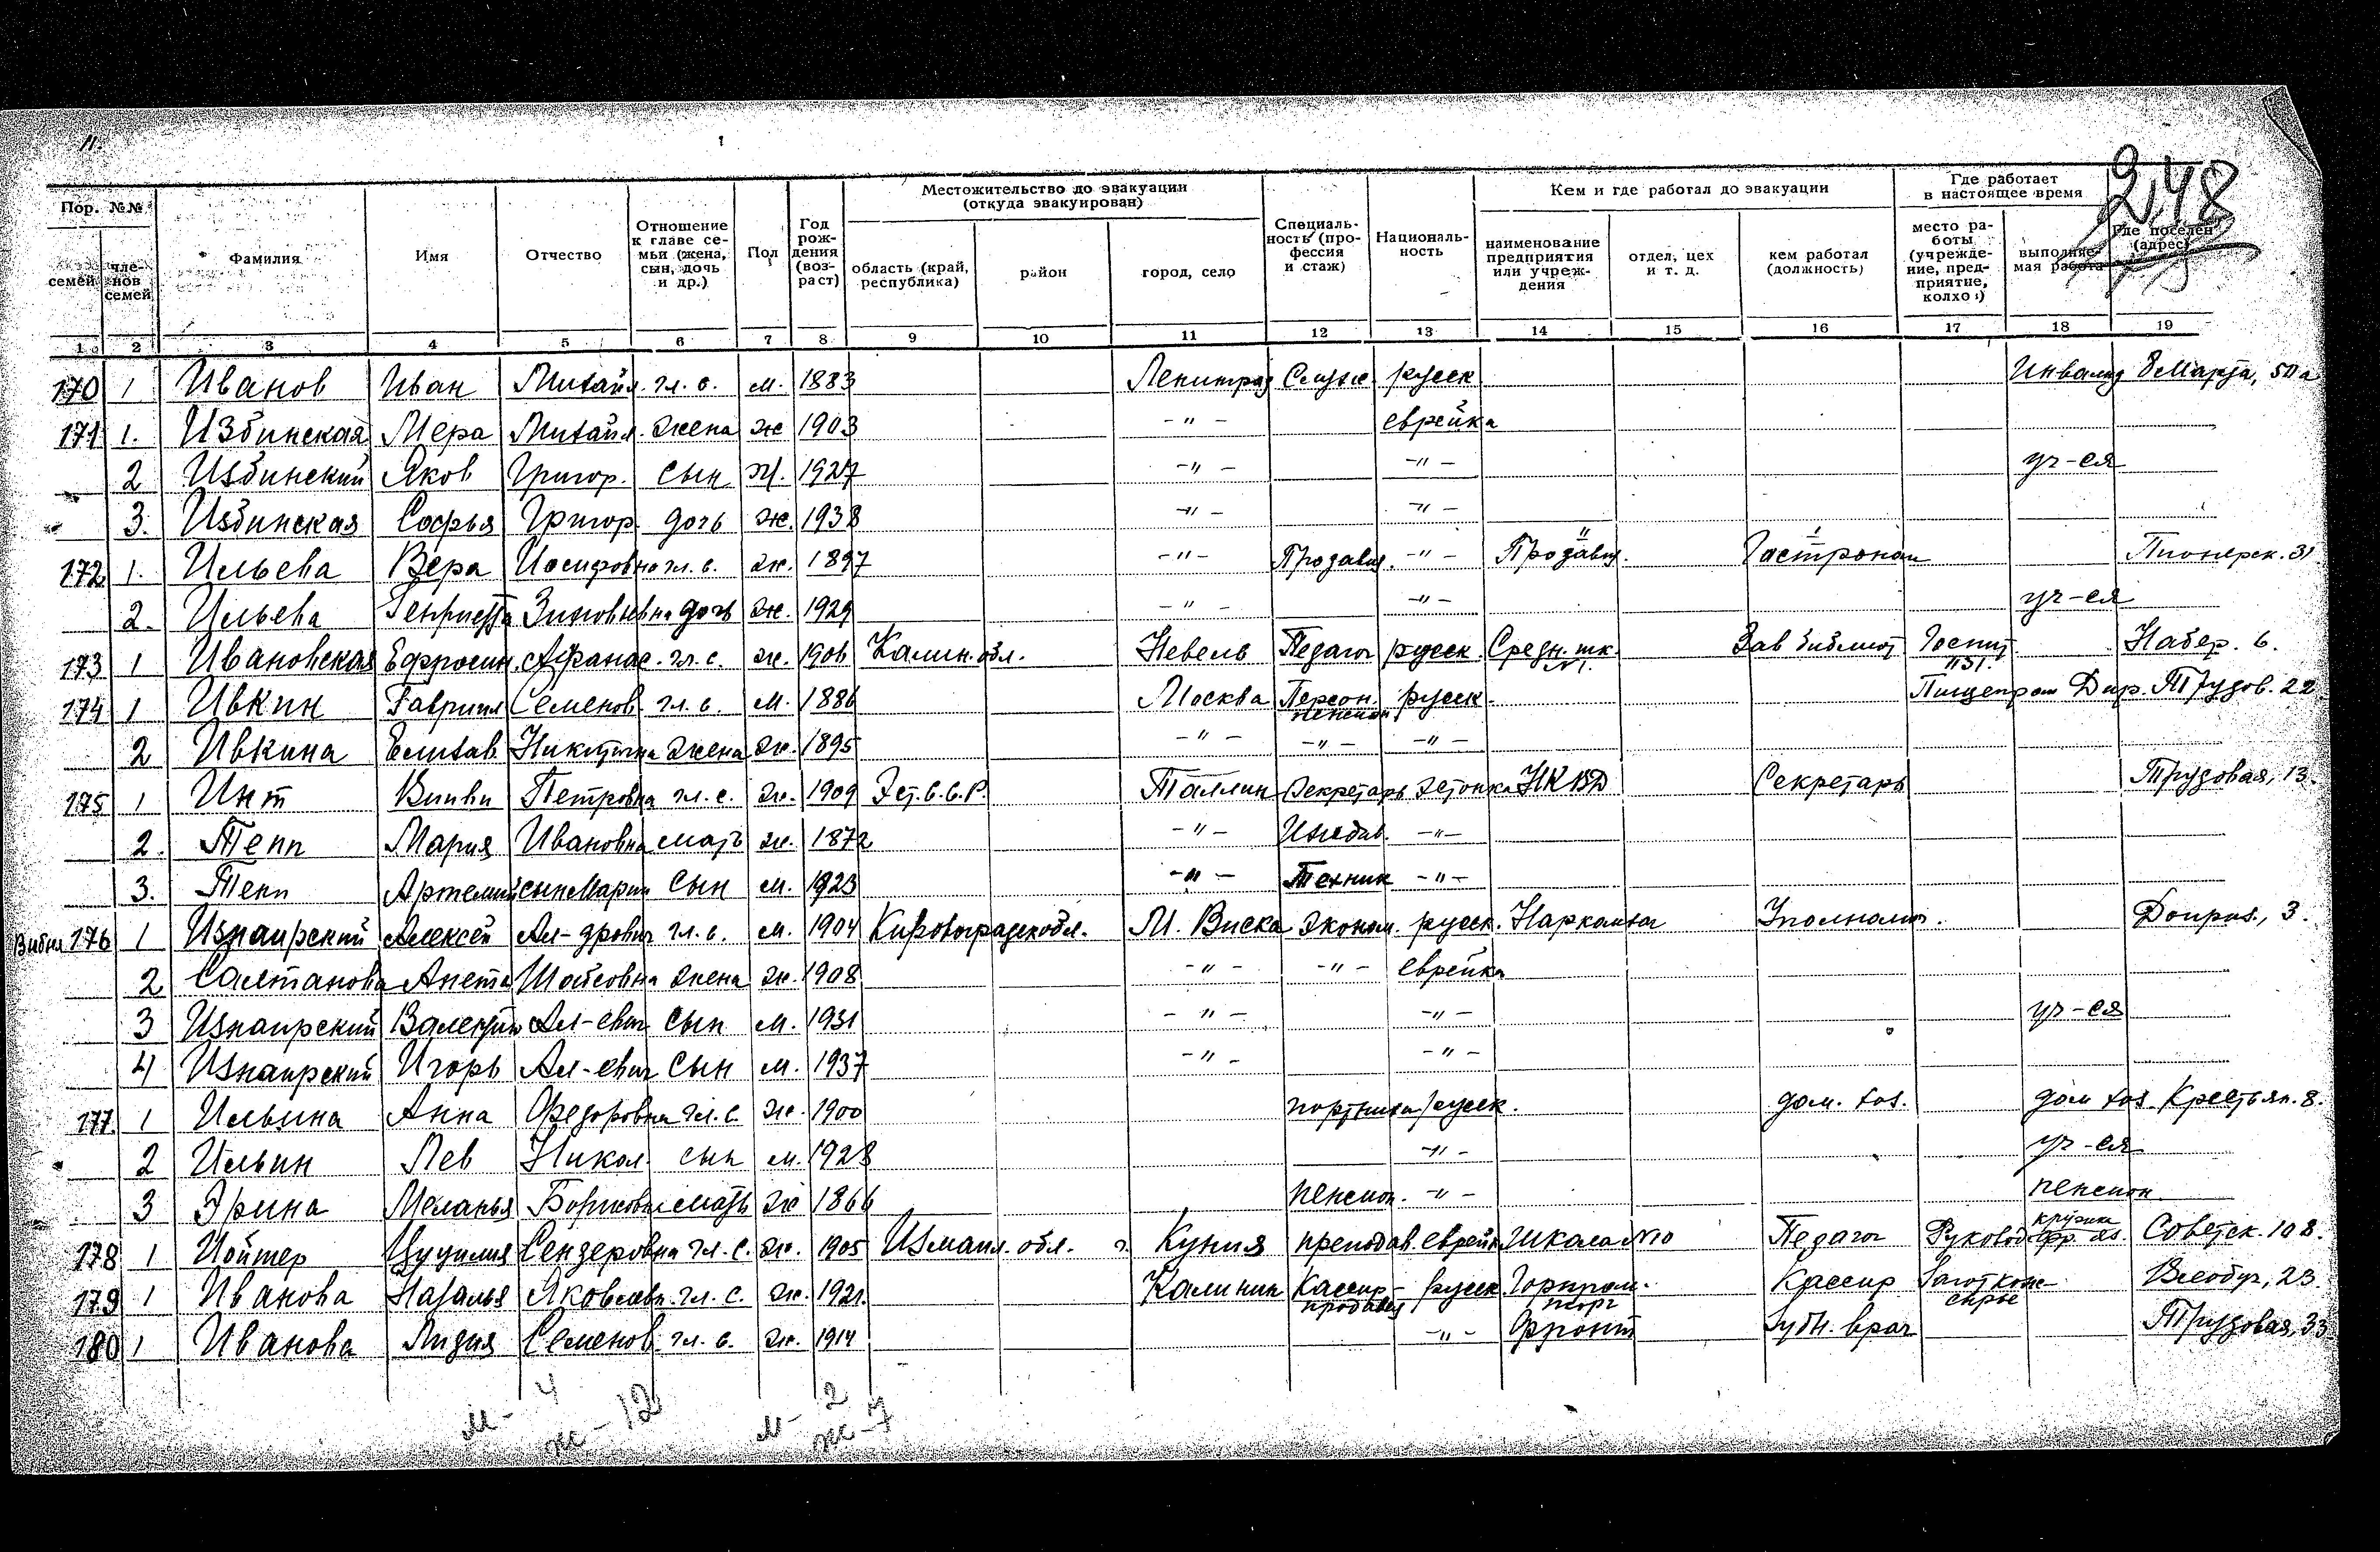 11.
248
Пор. №№
семей
чле-
нов
семей
Фамилия
Имя
Отчество
Отношение
к главе се-
мьи (жена,
сын, дочь
и др.)
Пол
Год
рож-
дения
(воз-
раст)
Местожительство до эвакуации
(откуда эвакуирован)
область (край,
республика)
район
город, село
Специаль-
ность (про-
фессия
и стаж)
Националь-
ность
Кем и где работал до эвакуации
наименование
предприятия
или учреж-
дения
отдел, цех
и т. д.
кем работал
(должность)
Где работает
в настоящее время
место ра-
боты
(учрежде-
ние, пред-
приятие,
колхоз)
выполняе-
мая работа
Где поселен
(адрес)
1 2 3 4 5 6 7 8 9 10 11 12 13 14 15 16 17 18 19
170 1 Иванов Иван Михайл. гл. с. м. 1883 Ленинград Служ русск Инвалид 8 Марта, 50а
171 1. Избинская Мера Михайл. жена ж 1903 -"- еврейка
2 Избинский Яков Григор. сын м. 1927 -"- -"- уч-ся
3. Избинская Софья Григор. дочь ж. 1938 -"- -"-
172 1. Ильева Вера Иосифовна гл. с. ж. 1897 -"- Продавщ. -"- Продавщ. Гастроном Пионерск. 31
2. Ильева Генриетта Зиновьевна дочь ж. 1929 -"- -"- уч-ся
173 1 Ивановская Ефросин. Афанас. гл. с. ж. 1906 Калин. обл. Невель Педагог русск. Средн. шк. Зав библиот Госпит. Набер. 6.
174 1 Ивкин Гавриил Семенов. гл. с. м. 1886 Москва Персон. пенсион русск. Пищепром Дир. Трудов. 22
2 Ивкина Елизав. Никитична жена ж. 1895 -"- -"- -"-
175 1 Инт Вииви Петровна гл. с. ж. 1909 Эст. С.С.Р. Таллин Секретарь эстонка НКВД Секретарь Трудовая, 13.
2. Тепп Мария Ивановна мать ж. 1872 -"- Иждив. -"-
3. Тепп Артемий сын Марии сын м. 1923 -"- Техник -"-
176 1 Изнаирский Алексей Ал-дрович гл. с. м. 1904 Кировоградск обл. М. Виска эконом. русск. Уполномоч. 3.
2 Салтанова Анета жена ж. 1908 -"- -"- еврейка
3 Изнаирский Валентин Ал-евич сын м. 1931 -"- -"- уч-ся
4 Изнаирский Игорь Ал-евич сын м. 1937 -"- -"-
177. 1 Ильина Анна Федоровна гл. с. ж. 1900 портниха русск. дом. хоз. дом хоз. Крестьян. 8.
2 Ильин Лев Никол. сын м. 1928 -"- уч-ся
3 Эрина Меланья Борисовна мать ж 1866 пенсион. -"- пенсион.
178 1 Йойтер Цуцилия Сендеровна гл. с. ж. 1905 Измаил. обл. г. преподав. еврейк Школа №10 Педагог Руковод кружк Советск. 108.
179 1 Иванова Наталья Яковлевн. гл. с. ж. 1921. Калинин Кассир-продавец русск Горпромторг Кассир Заготкожсырье Всеобуч, 23.
180 1 Иванова Лидия Семенов. гл. с. ж. 1914 -"- Фронт Зубн. врач Трудовая, 33
м - 4
ж - 12
м - 2
ж - 7